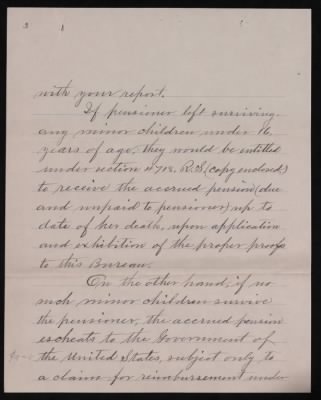 with your report.
If pensioner left surviving
any minor children under 16
years of age, they would be entitled
under section 4718. R.S (copy enclosed)
to receive the accrued pension (due
and unpaid to pensioner) up to
date of her death, upon application
and exhibition of the proper proofs
to this Bureau.
On the other hand, if no
such minor children survive
the pensioner, the accrued pension
escheats to the Government of
the United States, subject only to
a claim for reimbursement under